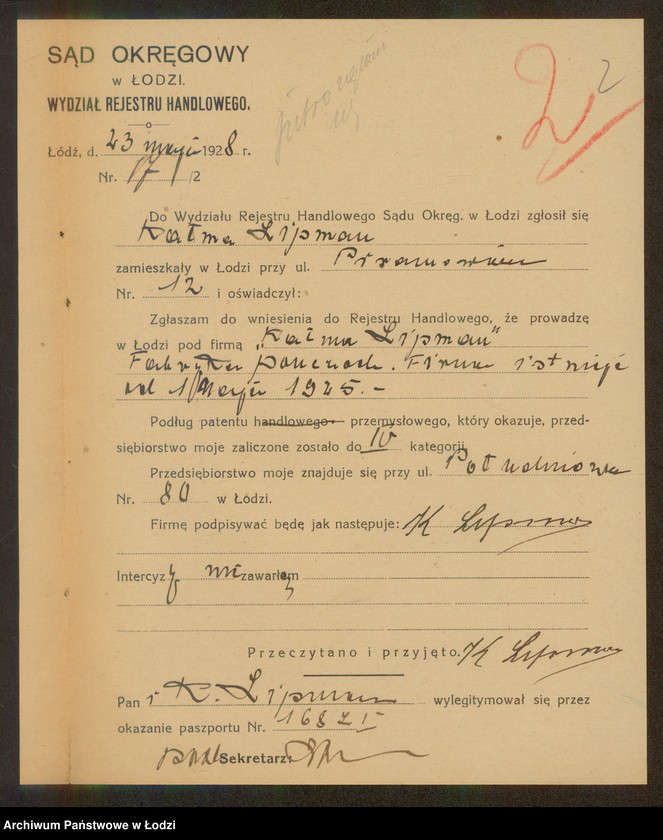 SĄD OKRĘGOWY
w ŁODZI.
WYDZIAŁ REJESTRU HANDLOWEGO.
jutro
2
2
Łódź, d. 23 maja 1928 r.
Nr. 17/2
Do Wydziału Rejestru Handlowego Sądu Okręg. w Łodzi zgłosił się
Kałma Lipman
zamieszkały w Łodzi przy ul.
Nr. 12 i oświadczył:
Zgłaszam do wniesienia do Rejestru Handlowego, że prowadzę
w Łodzi pod firmą „Kałma Lipman"
Fabryka pończoch. Firma istnieje
od 1 Maja 1925.-
Podług patentu handlowego- przemysłowego, który okazuje, przed-
siębiorstwo moje zaliczone zostało do IV kategorji
Przedsiębiorstwo moje znajduje się przy ul. Południowa
Nr. 80 w Łodzi.
Firmę podpisywać będę jak następuje: K Lipman
Intercyzy nie zawarłem
Przeczytano i przyjęto. K Lipman
Pan K. Lipman wylegitymował się przez
okazanie paszportu Nr.
Sekretarz:
Archiwum Państwowe w Łodzi